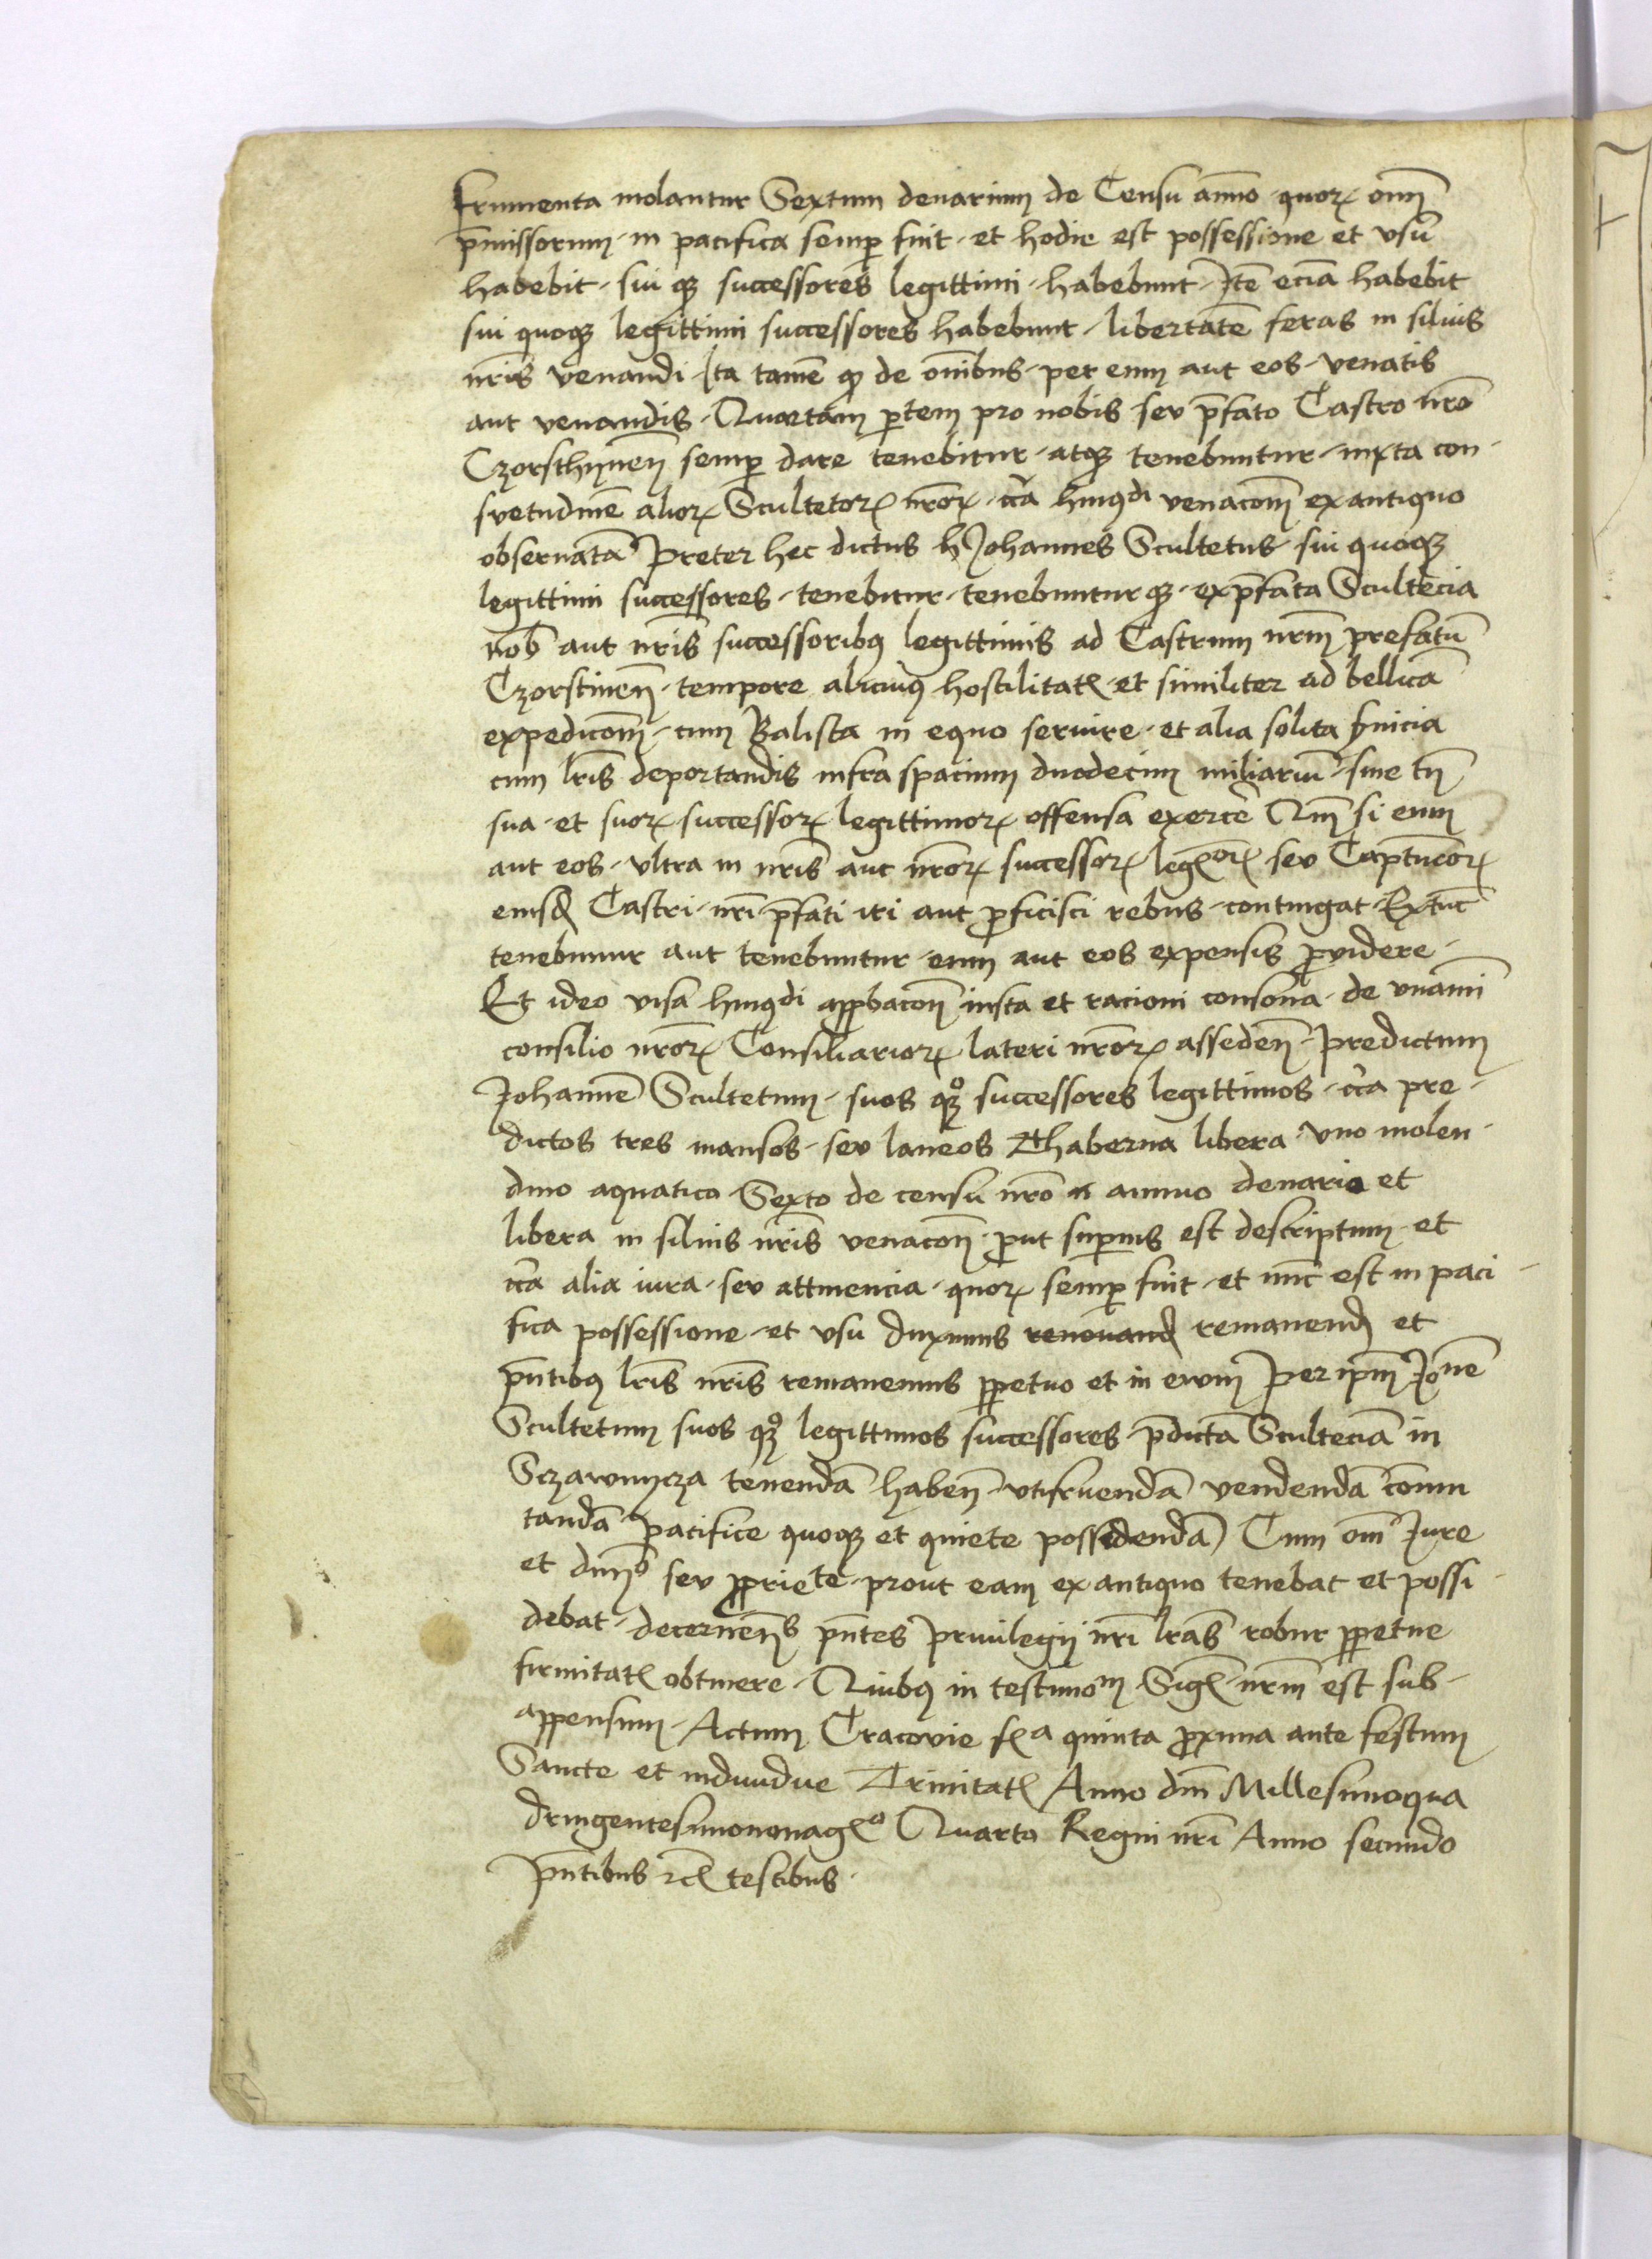 frumenta molantur Sextum denarium de Censu anno · quoꝝ om̄
p̄missorum · in pacifica semꝑ fuit · et hodie est possessione et vsu
habebit · sui qꝫ successores legittimi · habebunt · Itē eciā habebit
sui quoqꝫ legittimi successores habebunt · libertatē feras in siluis
nr̄is venandi · Ita tamē qꝫ de om̄ibus · per eum aut eos · venatis
aut venandis · Quartam ꝑtem pro nobis seu p̄fato Castro nr̄o
Czorsthynen̄ semꝑ dare tenebitur · atqꝫ tenebuntur · iuxta con-
suetudinē alioꝝ Scultetoꝝ nr̄oꝝ · cc̄a hmōi venacōm̄ ex antiquo
obseruatā Preter hec dictus h Johannes Scultetus · sui quoqꝫ
legittimi successores · tenebitur · tenebunturqꝫ · ex p̄fata Scultecia
nob̄ aut nr̄is successoribꝰ legittimis ad Castrum nr̄m prefatū
Czorstinen̄ · tempore alicuiꝰ hostilitatꝭ · et similiter ad bellicā
expedicōm̄ · cum Balista in equo seruire · et alia solita s̄uicia
cum lr̄is deportandis infra spacium duodecim miliariū · sine tn̄
sua · et suoꝝ successoꝝ legittimoꝝ offensa exercē Qm̄ si eum
aut eos · vltra in nr̄is aut nr̄oꝝ successoꝝ legꝭoꝝ seu Captūcoꝝ
eiusd̄ Castri · nr̄i p̄fati iri aut ꝓficisci rebus · contingat · Extūc
tenebimur aut tenebuntur · eum aut eos expensis ꝓuidere ·
Et ideo visa hmōi apꝓbacōn̄ iusta et racioni consona · de vnāmi
consilio nr̄oꝝ Consiliarioꝝ lateri nr̄oꝝ asseden̄ · Predictum
Johannē Scultetum · suos qꝫo successores legittimos · cc̄a pre-
dictos tres mansos · seu laneos Thaberna libera · vno molen-
dino aquatico · Sexto de censu nr̄o annuo denario et
libera in siluis nr̄is venacōn̄ · ꝓut suꝑius est descriptum · et
cc̄a alia iura · seu attinencia · quoꝝ semꝑ fuit · et nūc est in paci-
fica possessione · et vsu duximus renouand̄ remanend̄ et
pn̄tibꝰ lr̄is nr̄is remanemus ꝑpetuo et in evum Per ipm̄ Jonē
Scultetum suos qꝫo legittimos successores · p̄dictā Sculteciā in
Sczawnycza tenendā haben̄ · vtifruendā vendendā cōmu
tandā Pacifice quoqꝫ et quiete possidendā Cum om̄i Jure
et dm̄o seu ꝓpriete · prout eam ex antiquo tenebat et possi-
debat · decernen̄s pn̄tes Priuilegij nr̄i lr̄as robur ꝑpetue
firmitatꝭ obtinere · Quibꝰ in testimom Sigꝭ nr̄m est sub-
appensum · Actum Cracovie fꝭa quinta ꝓxima ante festum
Sancte et indiuidue Trinitatꝭ Anno dn̄i Millesimoqua
dringentesimononagꝭo Quarto Regni nr̄i Anno secundo
Pn̄tibus ꝛcꝭ testibus ·